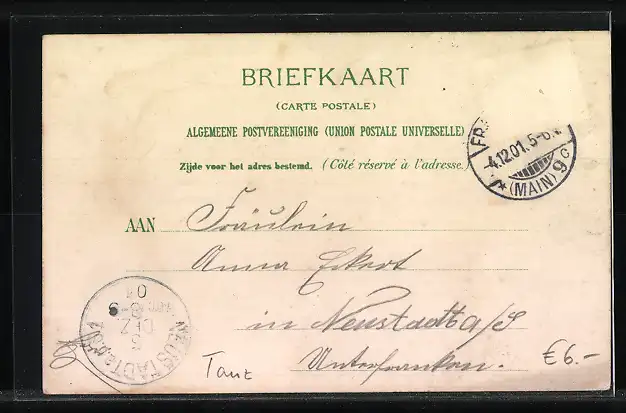 BRIEFKAART
(CARTE POSTALE)
ALGEMEENE POSTVEREENIGING (UNION POSTALE UNIVERSELLE)
Zijde voor het adres bestemd. (Côté réservé à l'adresse.)
FR
4.12.01. 5-6
* (MAIN) 9 c
AAN Fräulein
Anna Eckert
in Neustadt a/S
Unterfranken.
NEUSTADT a.
DEZ
01
Tanz
€6.-